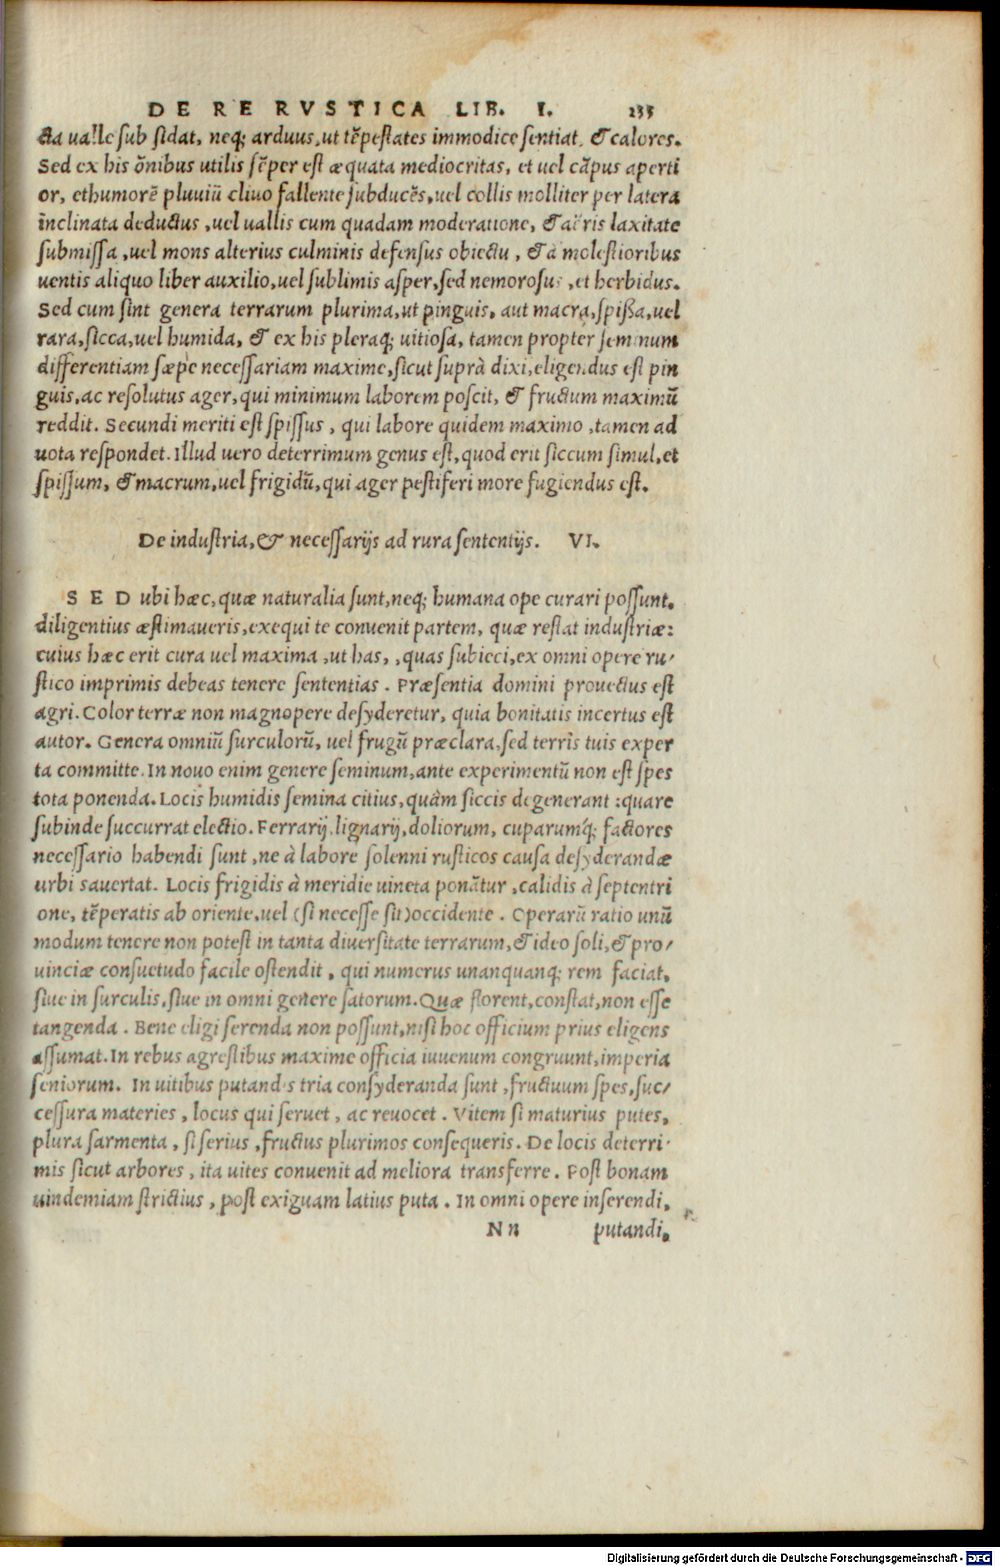 DE RE RVSTICA LIB. I. 233
cta ualle sub sidat, neq; arduus, ut tēpestates immodice sentiat, & calores.
Sed ex his ōnibus utilis sēper est æquata mediocritas, et uel cāpus aperti
or, ethumorē pluuiū cliuo fallente subducēs, uel collis molliter per latera
inclinata deductus, uel uallis cum quadam moderatione, & aëris laxitate
submissa, uel mons alterius culminis defensus obiectu, & à molestioribus
uentis aliquo liber auxilio, uel sublimis asper, sed nemorosus, et herbidus.
Sed cum sint genera terrarum plurima, ut pinguis, aut macra, spissa, uel
rara, sicca, uel humida, & ex his pleraq; uitiosa, tamen propter seminum
differentiam sæpe necessariam maxime, sicut suprà dixi, eligendus est pin
guis, ac resolutus ager, qui minimum laborem poscit, & fructum maximū
reddit. Secundi meriti est spissus, qui labore quidem maximo, tamen ad
uota respondet. Illud uero deterrimum genus est, quod erit siccum simul, et
spissum, & macrum, uel frigidū, qui ager pestiferi more fugiendus est.
De industria, & necessarijs ad rura sententijs. VI.
SED ubi hæc, quæ naturalia sunt, neq; humana ope curari possunt.
diligentius æstimaueris, exequi te conuenit partem, quæ restat industriæ:
cuius hæc erit cura uel maxima, ut has, , quas subieci, ex omni opere ru/
stico imprimis debeas tenere sententias. Præsentia domini prouectus est
agri. Color terræ non magnopere desyderetur, quia bonitatis incertus est
autor. Genera omniū surculorū, uel frugū præclara, sed terris tuis exper
ta committe. In nouo enim genere seminum, ante experimentū non est spes
tota ponenda. Locis humidis semina citius, quàm siccis degenerant: quare
subinde succurrat electio. Ferrarij, lignarij, doliorum, cuparumq́; factores
necessario habendi sunt, ne à labore solenni rusticos causa desyderandæ
urbi sauertat. Locis frigidis à meridie uineta ponātur, calidis à septentri
one, tēperatis ab oriente, uel (si necesse sit) occidente. Operarū ratio unū
modum tenere non potest in tanta diuersitate terrarum, & ideo soli, & pro/
uinciæ consuetudo facile ostendit, qui numerus unanquanq; rem faciat,
siue in surculis, siue in omni genere satorum. Quæ florent, constat, non esse
tangenda. Bene eligi serenda non possunt, nisi hoc officium prius eligens
assumat. In rebus agrestibus maxime officia iuuenum congruunt, imperia
seniorum. In uitibus putandis tria consyderanda sunt, fructuum spes, suc/
cessura materies, locus qui seruet, ac reuocet. Vitem si maturius putes,
plura sarmenta, si serius, fructus plurimos consequeris. De locis deterri/
mis sicut arbores, ita uites conuenit ad meliora transferre. Post bonam
uindemiam strictius, post exiguam latius puta. In omni opere inserendi,
Nn putandi,
Digitalisierung gefördert durch die Deutsche Forschungsgemeinschaft - DFG